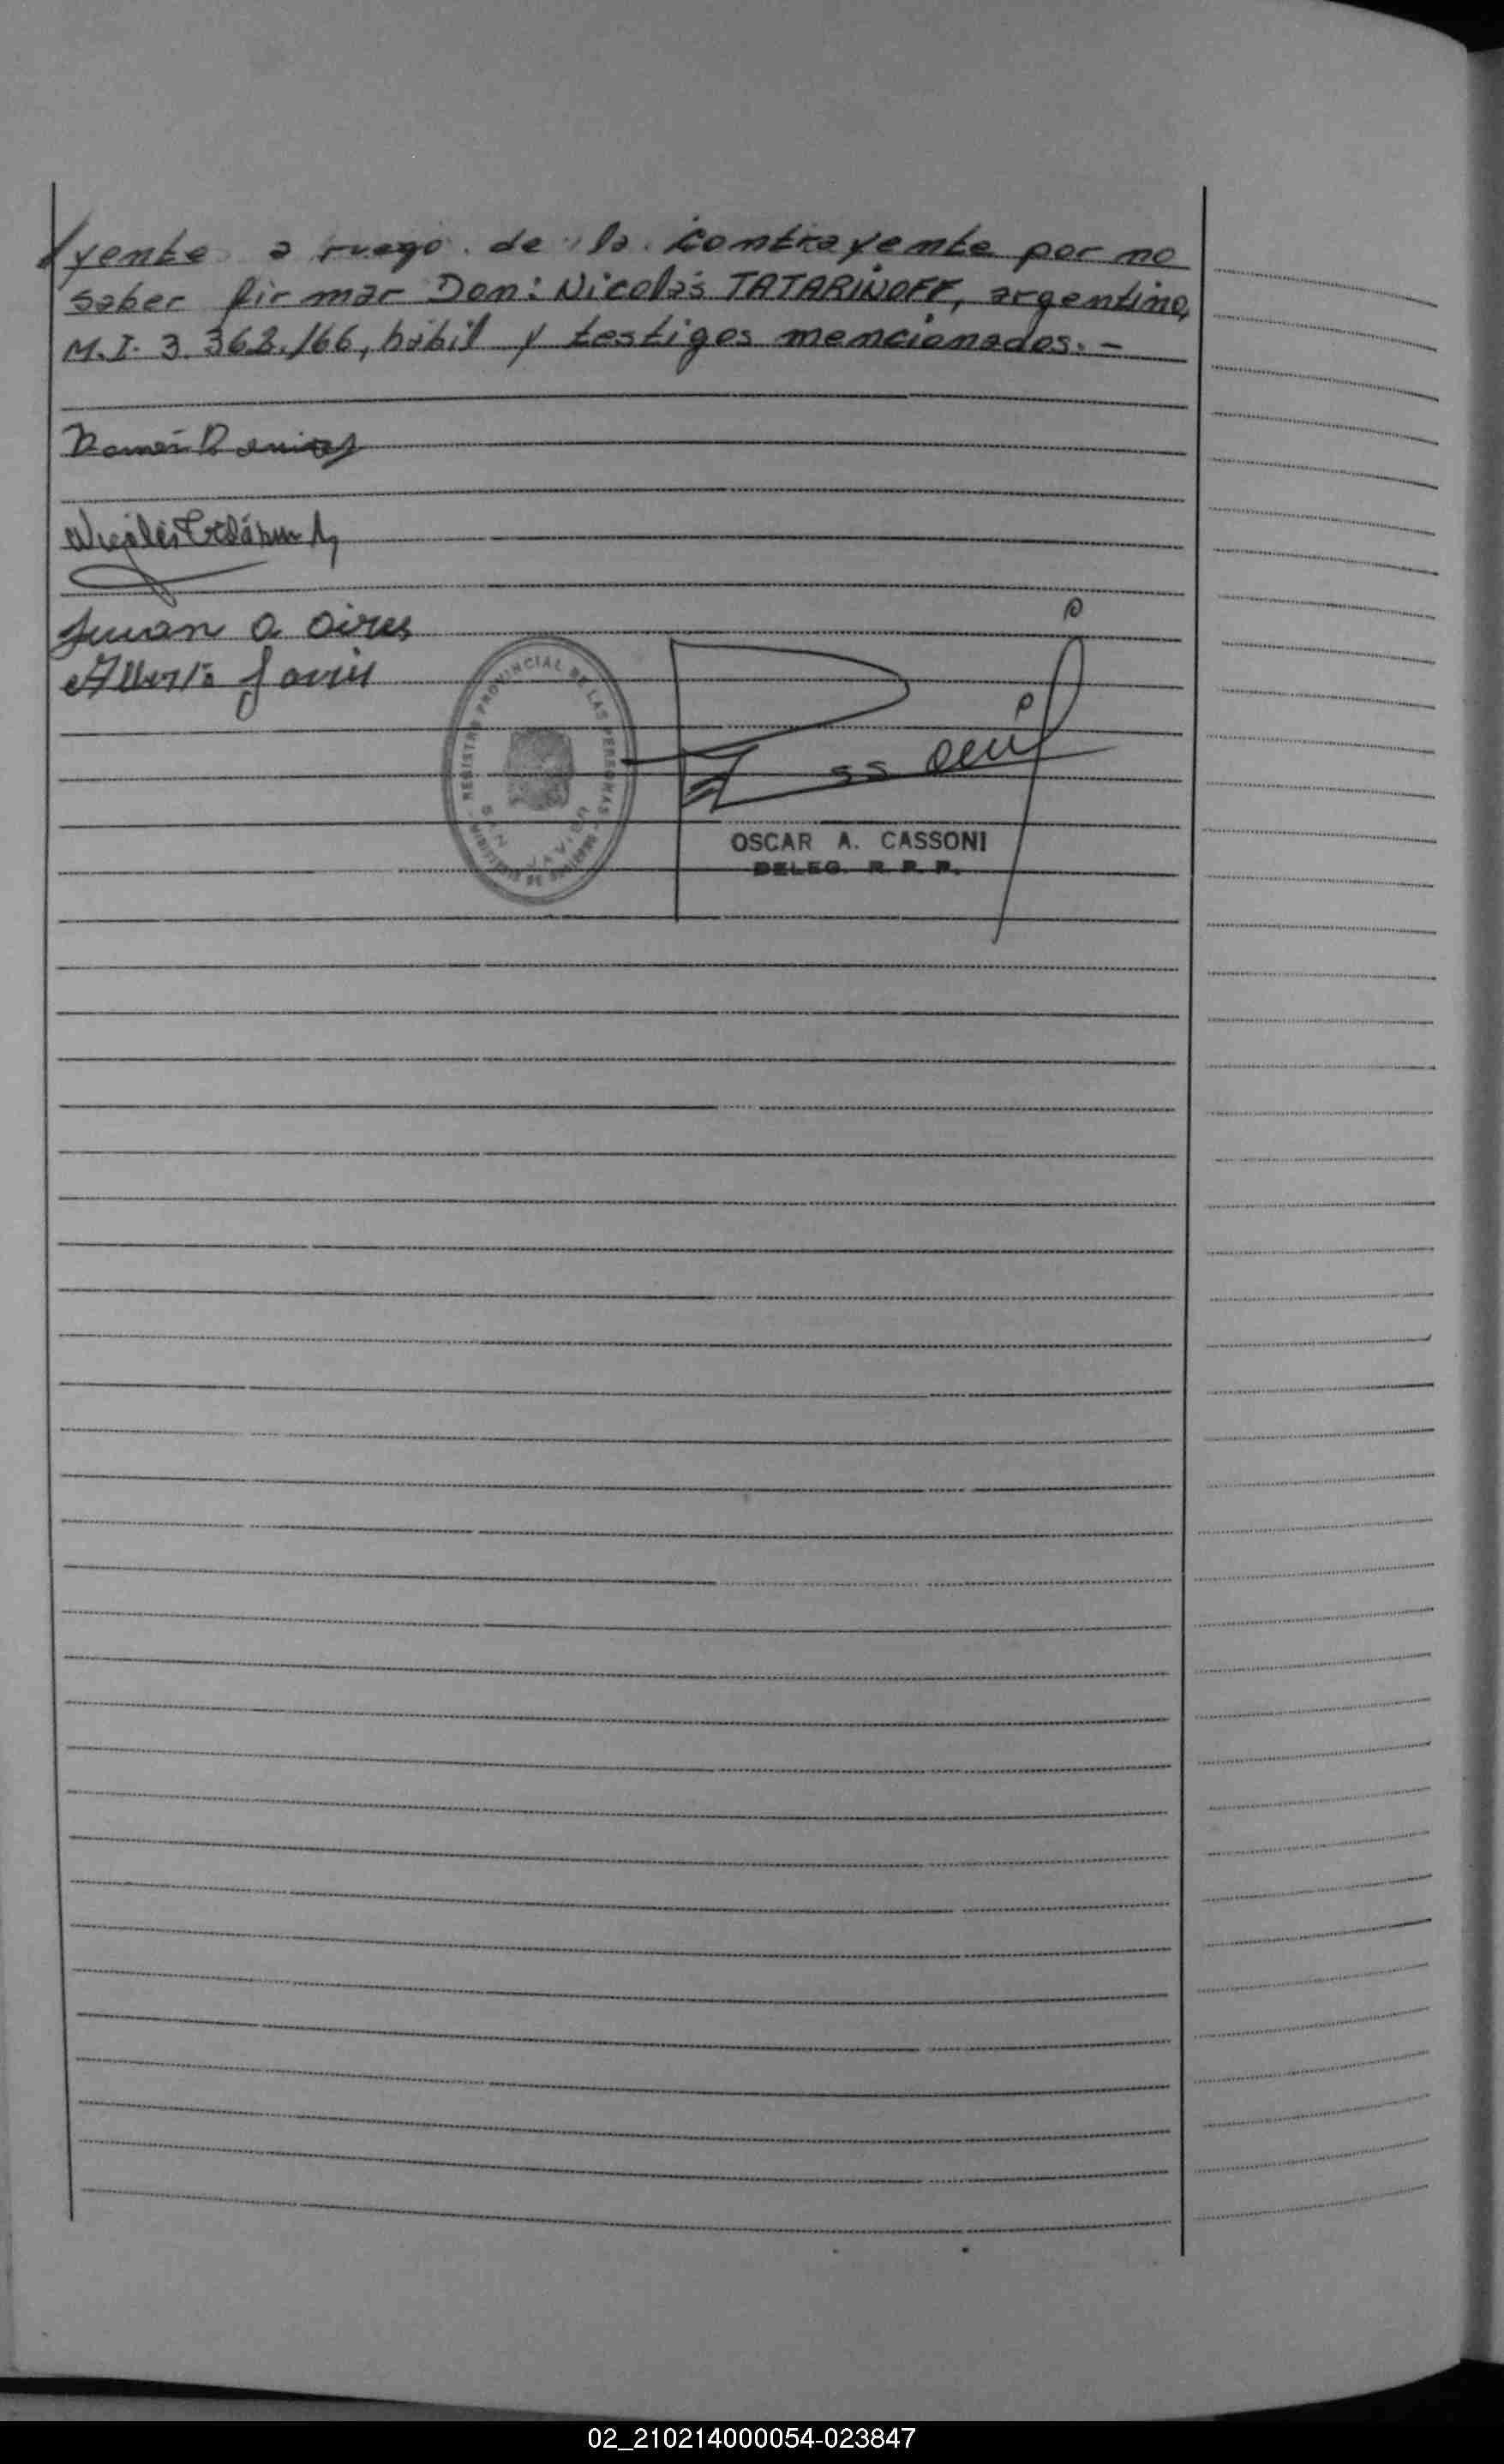 yente a ruego de la contrayente por no
saber firmar Don: Nicolás TATARINOFF, argentino,
M.I. 3.362.166, hábil y testigos mencionados.-
Juan a aires
REGISTRO PROVINCIAL DE LAS PERSONAS
SAN JAVIER
OSCAR A. CASSONI
DELEG. R. P. P.
02_210214000054-023847